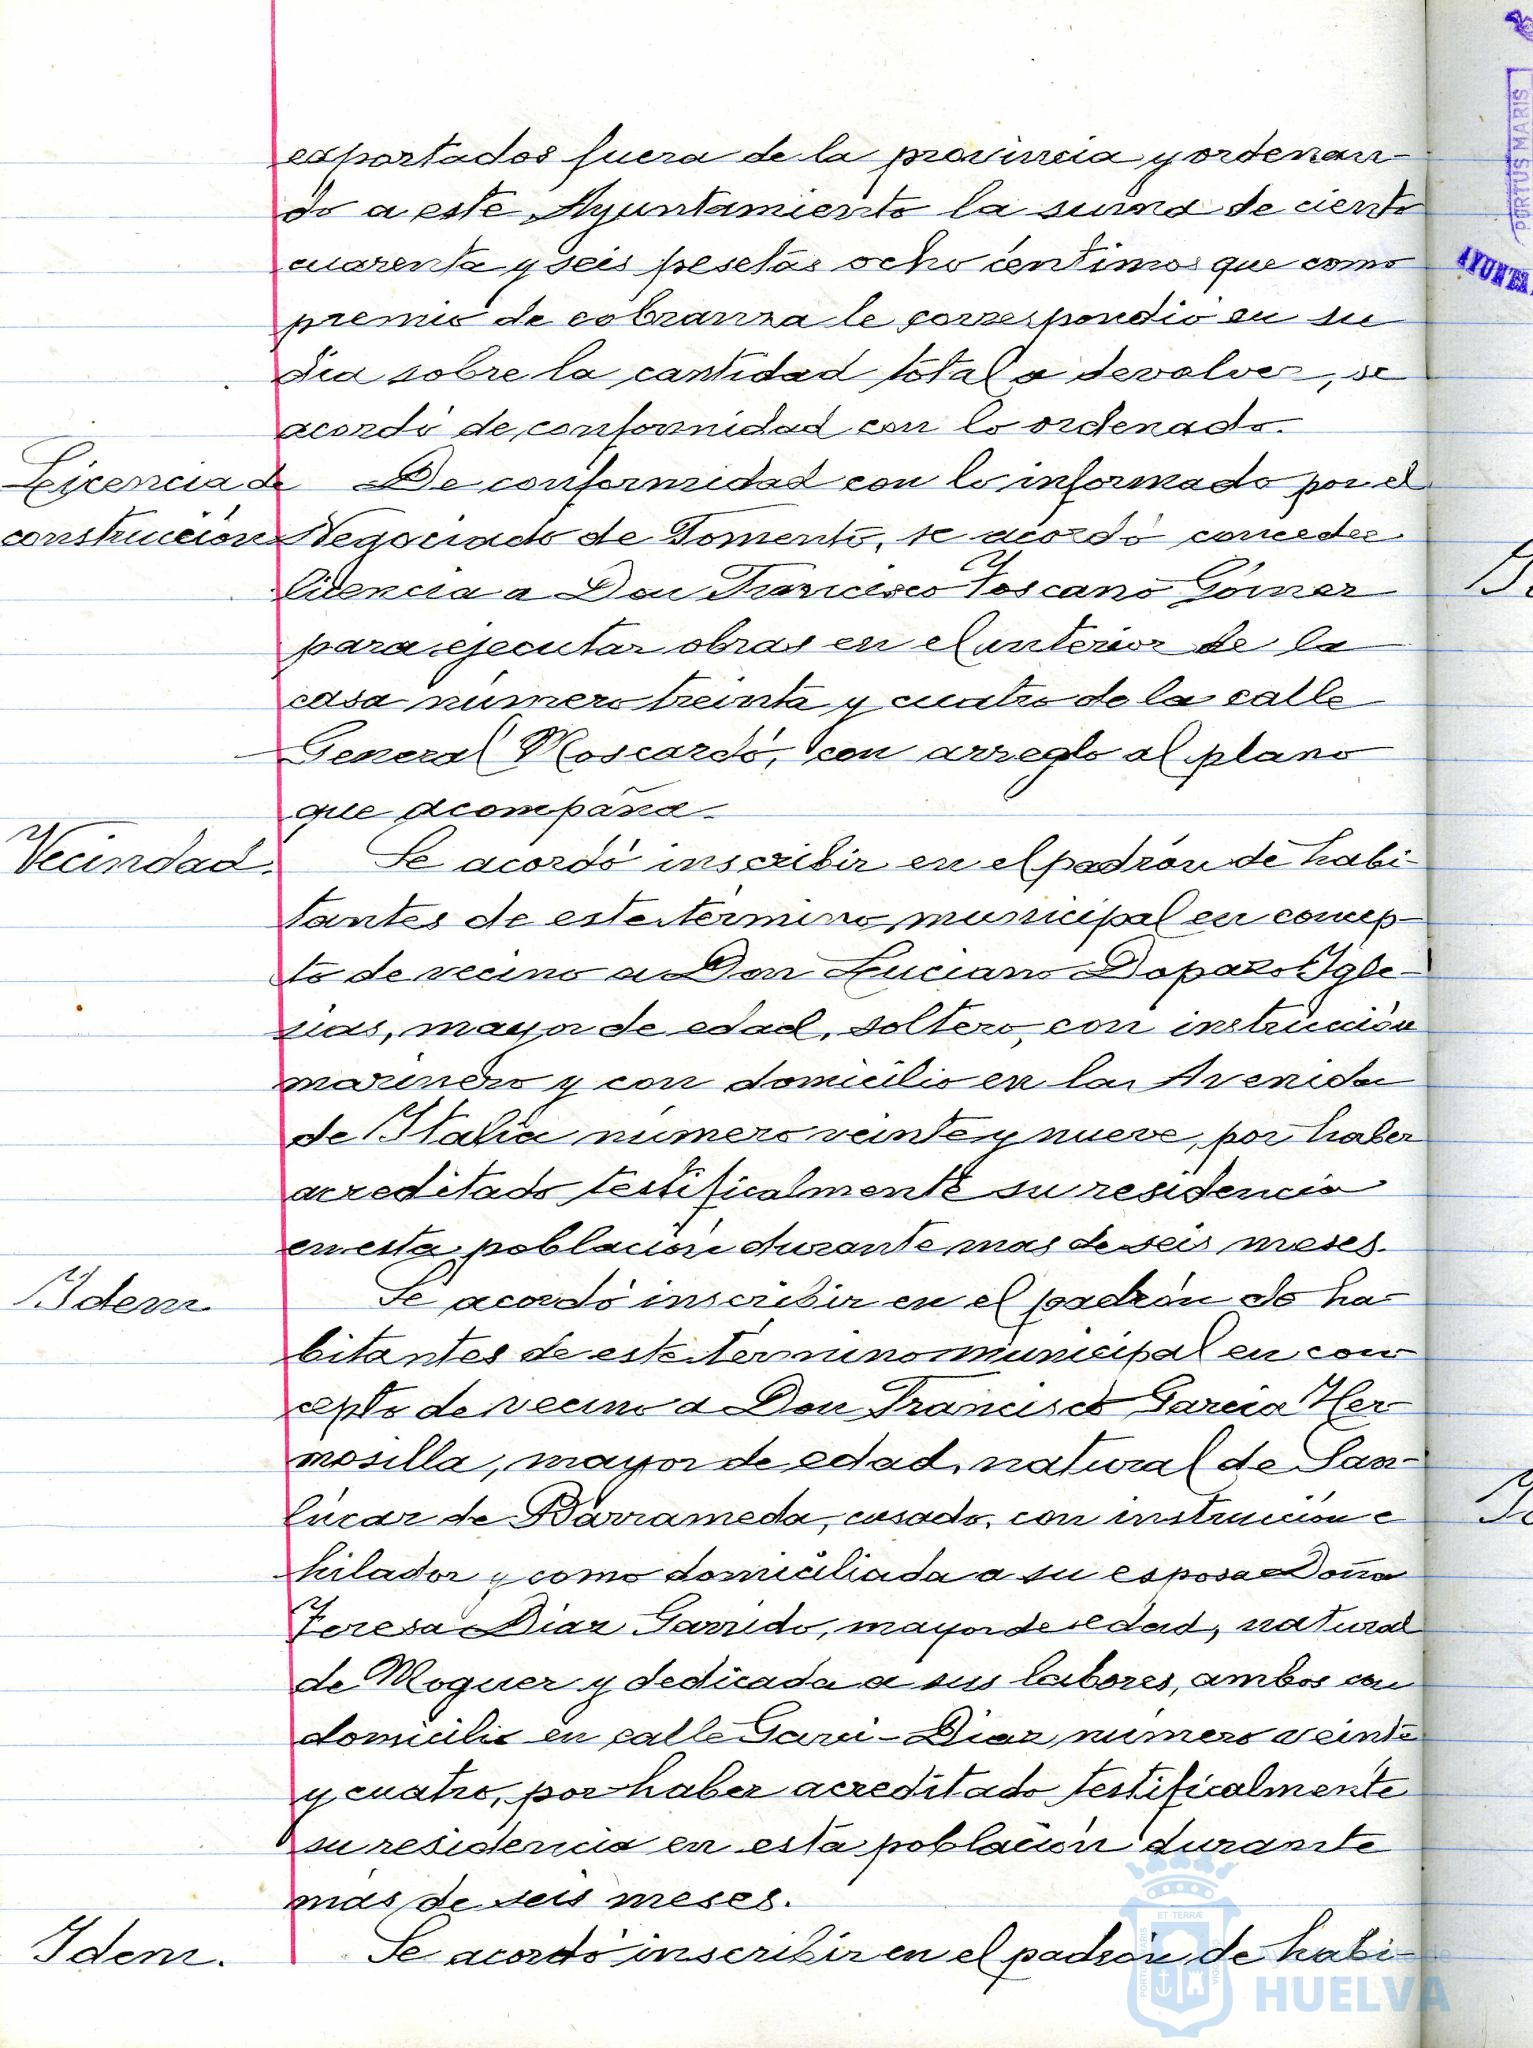 exportados fuera de la provincia y ordenan-
do a este Ayuntamiento la suma de ciento
cuarenta y seis pesetas ocho céntimos que como
premio de cobranza le correspondió en su
dia sobre la cantidad total a devolver, se
acordó de conformidad con lo ordenado.
Licencia de
construcción
De conformidad con lo informado por el
Negociado de Fomento, se acordó conceder
licencia a Don Francisco Toscano Gómez
para ejecutar obras en el interior de la
casa número treinta y cuatro de la calle
General Moscardó, con arreglo al plano
que acompaña.
Vecindad.
Se acordó inscribir en el padrón de habi-
tantes de este término municipal en concep-
to de vecino a Don Luciano Dopazo Igle-
sias, mayor de edad, soltero, con instrucción
marinero y con domicilio en la Avenida
de Italia número veinte y nueve, por haber
acreditado testificalmente su residencia
en esta población durante mas de seis meses.
Idem
Se acordó inscribir en el padrón de ha-
bitantes de este término municipal en con-
cepto de vecino a Don Francisco Garcia Her-
mosilla, mayor de edad, natural de San-
lúcar de Barrameda, casado, con instrucción e
hilador y como domiciliada a su esposa Doña
Teresa Diaz Garrido, mayor de edad, natural
de Moguer y dedicada a sus labores, ambos con
domicilio en calle Garci-Diaz número veinte
y cuatro, por haber acreditado testificalmente
su residencia en esta población durante
más de seis meses.
Idem.
Se acordó inscribir en el padrón de habi-
HUELVA
PORTUS MARIS